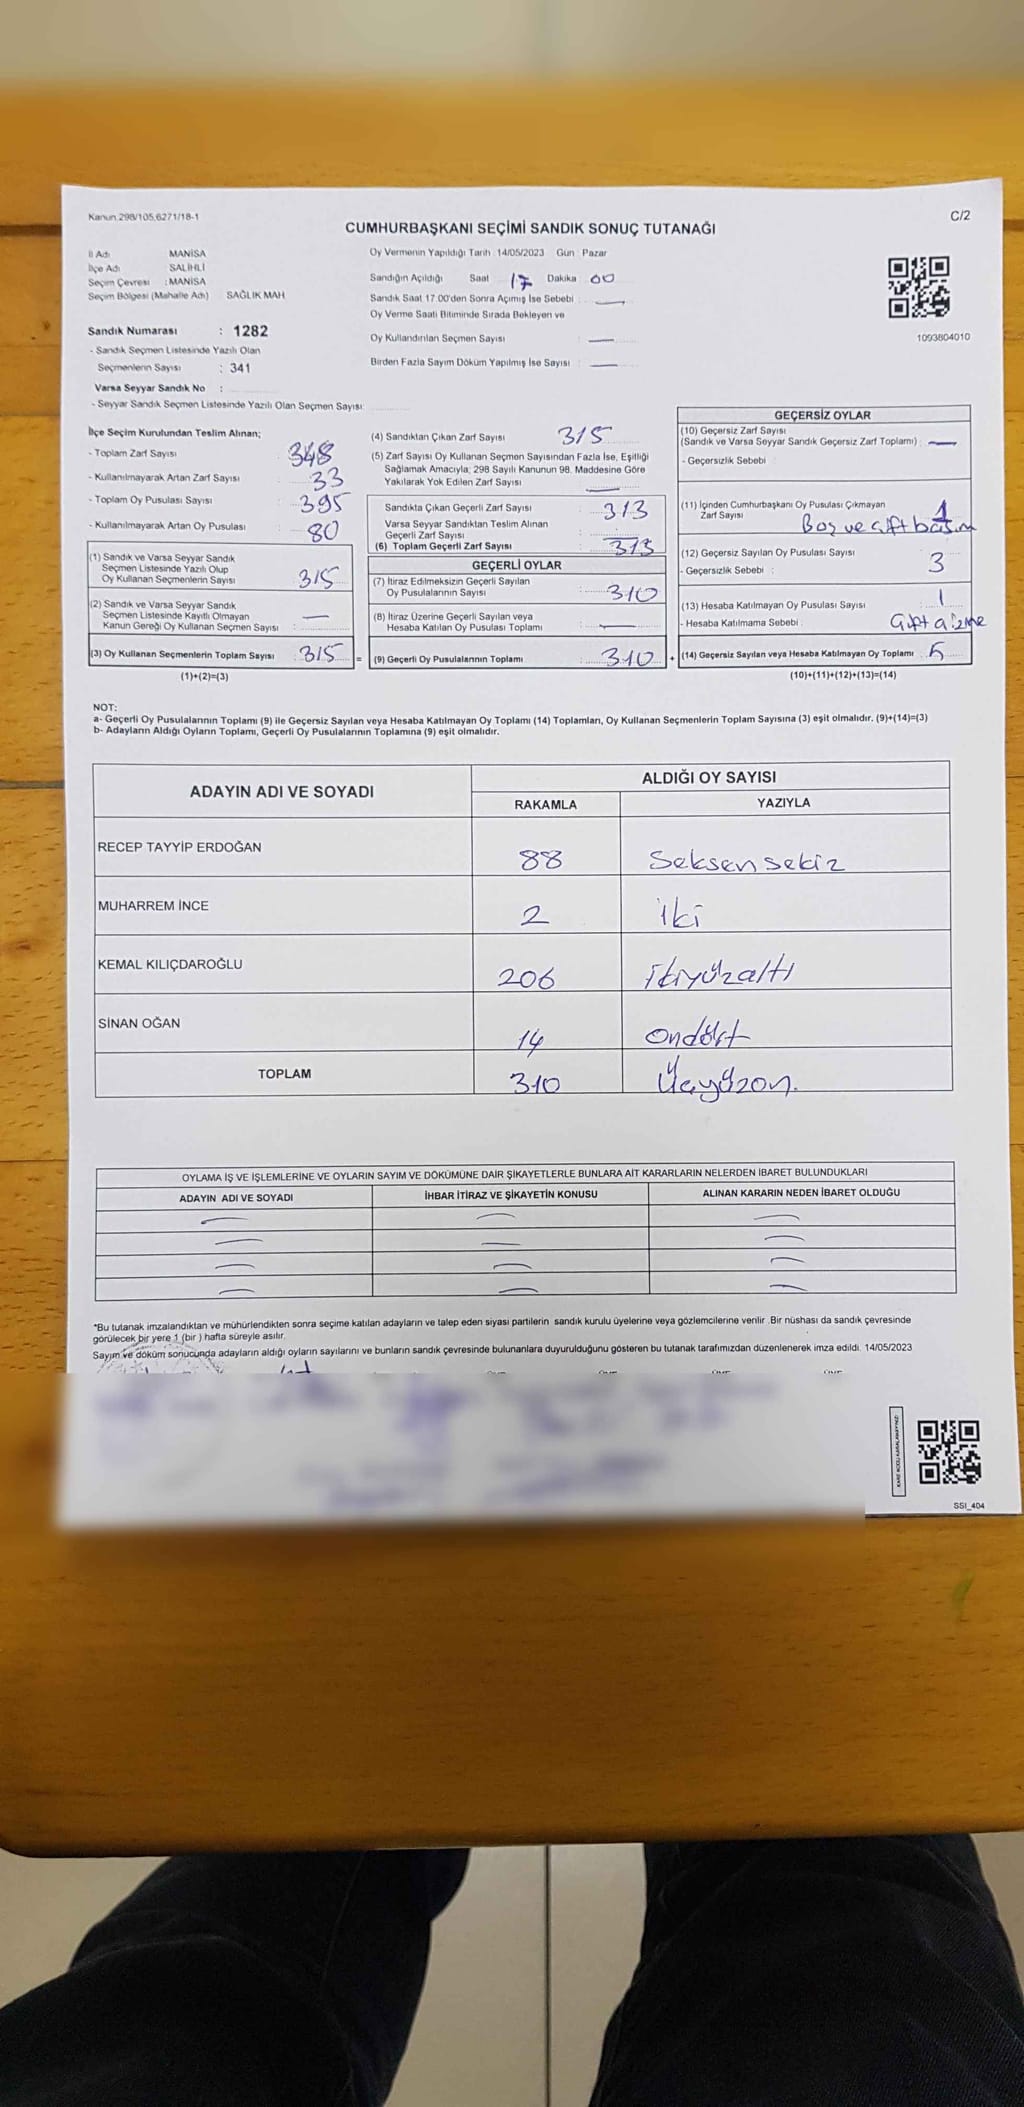 Kanun 298/105,6271/18-1
C/2
CUMHURBAŞKANI SEÇİMİ SANDIK SONUÇ TUTANAĞI
İl Adı MANİSA
İlçe Adı SALİHLİ
Seçim Çevresi : MANİSA
Seçim Bölgesi (Mahalle Adı) SAĞLIK MAH
Sandık Numarası : 1282
- Sandık Seçmen Listesinde Yazılı Olan
Seçmenlerin Sayısı : 341
Varsa Seyyar Sandık No :
- Seyyar Sandık Seçmen Listesinde Yazılı Olan Seçmen Sayısı:
Oy Vermenin Yapıldığı Tarih 14/05/2023 Gün Pazar
Sandığın Açıldığı Saat 17 Dakika 00
Sandık Saat 17.00'den Sonra Açımış İse Sebebi : —
Oy Verme Saati Bitiminde Sırada Bekleyen ve
Oy Kullandırılan Seçmen Sayısı : —
Birden Fazla Sayım Döküm Yapılmış İse Sayısı : —
1093804010
İlçe Seçim Kurulundan Teslim Alınan;
- Toplam Zarf Sayısı 348
- Kullanılmayarak Artan Zarf Sayısı 33
- Toplam Oy Pusulası Sayısı 395
- Kullanılmayarak Artan Oy Pusulası 80
(1) Sandık ve Varsa Seyyar Sandık
Seçmen Listesinde Yazılı Olup
Oy Kullanan Seçmenlerin Sayısı 315
(2) Sandık ve Varsa Seyyar Sandık
Seçmen Listesinde Kayıtlı Olmayan
Kanun Gereği Oy Kullanan Seçmen Sayısı : —
(3) Oy Kullanan Seçmenlerin Toplam Sayısı : 315 =
(1)+(2)=(3)
(4) Sandıktan Çıkan Zarf Sayısı 315
(5) Zarf Sayısı Oy Kullanan Seçmen Sayısından Fazla İse, Eşitliği
Sağlamak Amacıyla; 298 Sayılı Kanunun 98. Maddesine Göre
Yakılarak Yok Edilen Zarf Sayısı —
Sandıkta Çıkan Geçerli Zarf Sayısı : 313
Varsa Seyyar Sandıktan Teslim Alınan
Geçerli Zarf Sayısı : —
(6) Toplam Geçerli Zarf Sayısı : 313
GEÇERLİ OYLAR
(7) İtiraz Edilmeksizin Geçerli Sayılan
Oy Pusulalarının Sayısı : 310
(8) İtiraz Üzerine Geçerli Sayılan veya
Hesaba Katılan Oy Pusulası Toplamı : —
(9) Geçerli Oy Pusulalarının Toplamı : 310 +
GEÇERSİZ OYLAR
(10) Geçersiz Zarf Sayısı
(Sandık ve Varsa Seyyar Sandık Geçersiz Zarf Toplamı) : —
- Geçersizlik Sebebi
(11) İçinden Cumhurbaşkanı Oy Pusulası Çıkmayan
Zarf Sayısı 1
Boş ve çift basım
(12) Geçersiz Sayılan Oy Pusulası Sayısı 3
- Geçersizlik Sebebi :
(13) Hesaba Katılmayan Oy Pusulası Sayısı : 1
- Hesaba Katılmama Sebebi : Çift
(14) Geçersiz Sayılan veya Hesaba Katılmayan Oy Toplamı : 5
(10)+(11)+(12)+(13)=(14)
NOT:
a- Geçerli Oy Pusulalarının Toplamı (9) ile Geçersiz Sayılan veya Hesaba Katılmayan Oy Toplamı (14) Toplamları, Oy Kullanan Seçmenlerin Toplam Sayısına (3) eşit olmalıdır. (9)+(14)=(3)
b- Adayların Aldığı Oyların Toplamı, Geçerli Oy Pusulalarının Toplamına (9) eşit olmalıdır.
ADAYIN ADI VE SOYADI
ALDIĞI OY SAYISI
RAKAMLA YAZIYLA
RECEP TAYYİP ERDOĞAN 88 Seksen sekiz
MUHARREM İNCE 2 iki
KEMAL KILIÇDAROĞLU 206 ikiyüzaltı
SİNAN OĞAN 14 Ondört
TOPLAM 310 Üçyüzon.
OYLAMA İŞ VE İŞLEMLERİNE VE OYLARIN SAYIM VE DÖKÜMÜNE DAİR ŞİKAYETLERLE BUNLARA AİT KARARLARIN NELERDEN İBARET BULUNDUKLARI
ADAYIN ADI VE SOYADI İHBAR İTİRAZ VE ŞİKAYETİN KONUSU ALINAN KARARIN NEDEN İBARET OLDUĞU
— — —
— — —
— — —
— — —
*Bu tutanak imzalandıktan ve mühürlendikten sonra seçime katılan adayların ve talep eden siyasi partilerin sandık kurulu üyelerine veya gözlemcilerine verilir .Bir nüshası da sandık çevresinde
görülecek bir yere 1 (bir ) hafta süreyle asılır.
Sayım ve döküm sonucunda adayların aldığı oyların sayılarını ve bunların sandık çevresinde bulunanlara duyurulduğunu gösteren bu tutanak tarafımızdan düzenlenerek imza edildi. 14/05/2023
SSI_404